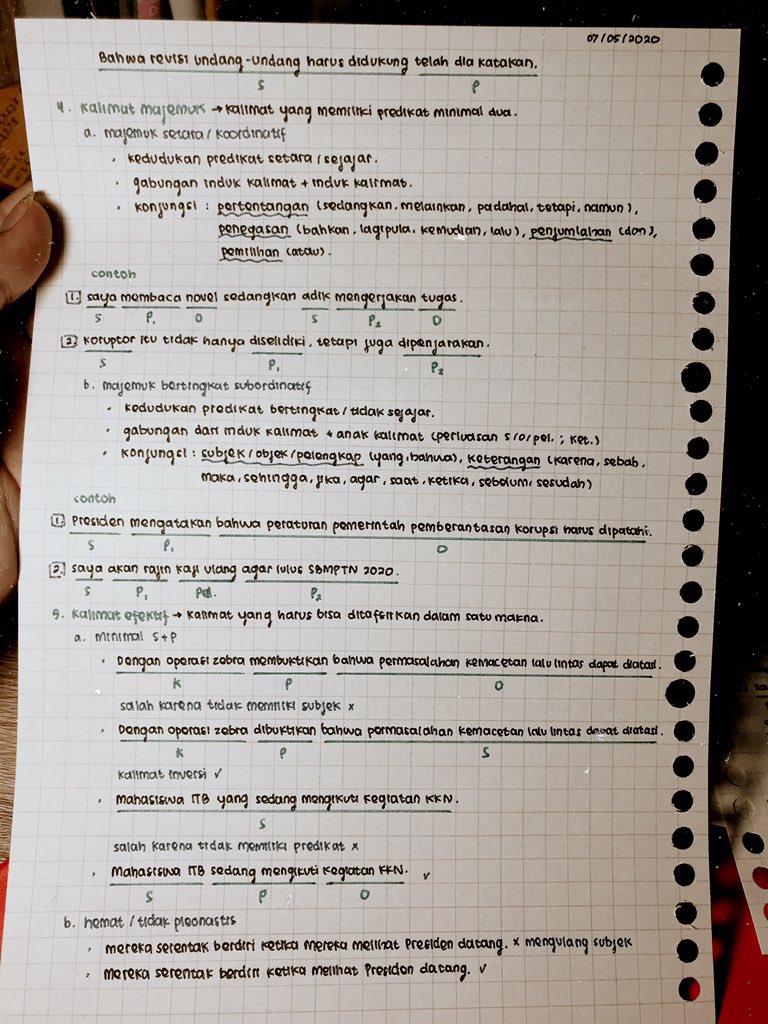 07/05/2020
Bahwa revisi undang-undang harus didukung telah dia katakan.
S P
4. Kalimat majemuk → kalimat yang memiliki predikat minimal dua.
a. majemuk setara / koordinatif
• kedudukan predikat setara / sejajar.
• gabungan induk kalimat + induk kalimat.
• konjungsi : pertentangan (sedangkan, melainkan, padahal, tetapi, namun),
penegasan (bahkan, lagipula, kemudian, lalu), penjumlahan (dan),
pemilihan (atau).
contoh
1. saya membaca novel sedangkan adik mengerjakan tugas.
S P1 O S P2 O
2. koruptor itu tidak hanya diselidiki, tetapi juga dipenjarakan.
S P1 P2
b. majemuk bertingkat subordinatif
• kedudukan predikat bertingkat / tidak sejajar.
• gabungan dari induk kalimat + anak kalimat (perluasan S/O/pel. ; ket.)
• konjungsi : subjek / objek / pelengkap (yang, bahwa), keterangan (karena, sebab,
maka, sehingga, jika, agar, saat, ketika, sebelum, sesudah)
contoh
1. Presiden mengatakan bahwa peraturan pemerintah pemberantasan korupsi harus dipatahi.
S P1 O
2. saya akan rajin kaji ulang agar lulus SBMPTN 2020.
S P1 Pel. P2
5. Kalimat efektif → kalimat yang harus bisa ditafsirkan dalam satu makna.
a. minimal S+P
• Dengan operasi zebra membuktikan bahwa permasalahan kemacetan lalu lintas dapat diatasi.
K P O
salah karena tidak memiliki subjek x
• Dengan operasi zebra dibuktikan bahwa permasalahan kemacetan lalu lintas dapat diatasi.
K P S
kalimat inversi ✓
• Mahasiswa ITB yang sedang mengikuti kegiatan KKN.
S
salah karena tidak memiliki predikat x
• Mahasiswa ITB sedang mengikuti kegiatan KKN. ✓
S P O
b. hemat / tidak pleonastis
• mereka serentak berdiri ketika mereka melihat Presiden datang. x mengulang subjek
• mereka serentak berdiri ketika melihat Presiden datang. ✓